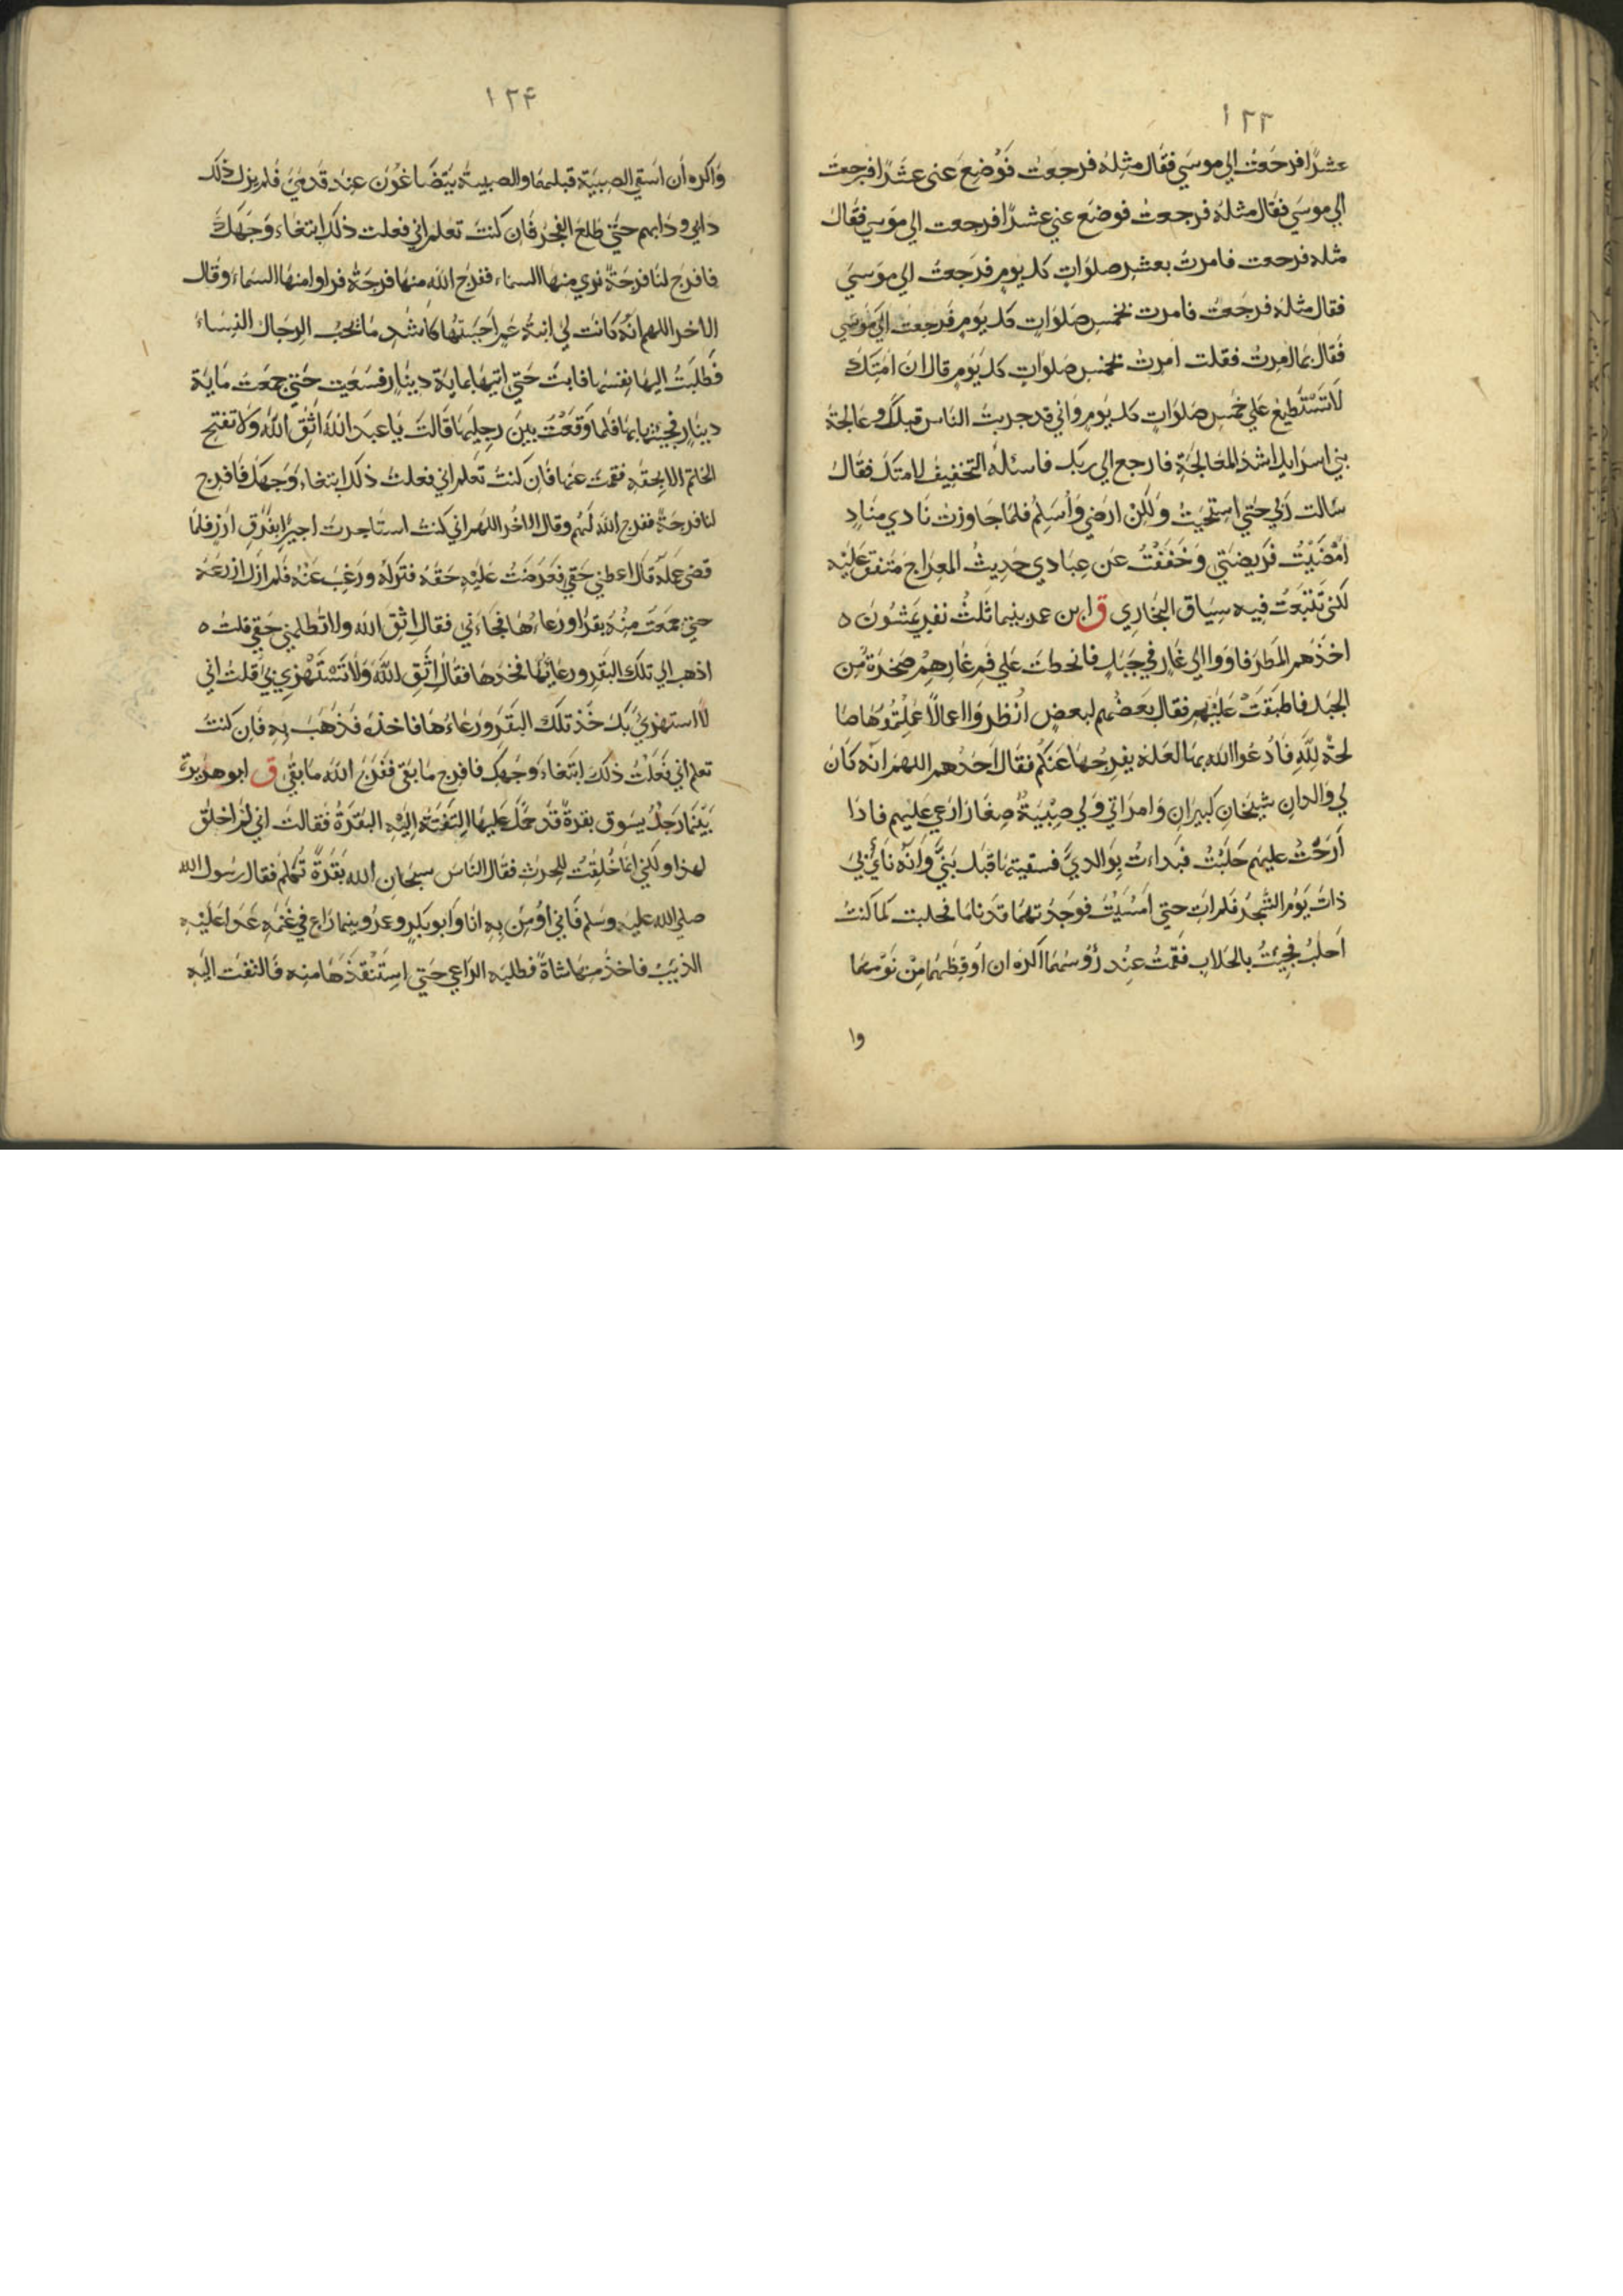 ١٢٣
عشرًا فرجعت الي موسي فقال مثله فرجعت فوضع عني عشرًا فرجعت
الي موسي فقال مثله فرجعت فوضع عني عشرًا فرجعت الي موسي فقال
مثله فرجعت فامرت بعشر صلوات كل يوم فرجعت الي موسي
فقال مثله فرجعت فامرت بخمس صلوات كل يوم فرجعت الي موسي
فقال بما امرت فقلت امرت بخمس صلوات كل يوم قال ان امتك
لا تستطيع علي خمس صلوات كل يوم واني قد جربت الناس قبلك وعالجة
بني اسرايل اشد المعالجة فارجع الي ربك فاسئله التخفيف لامتك فقال
سالت ربي حتي استحييت ولكن ارضي واسلم فلما جاوزت نادي مناد
امضيت فريضتي وخففت عن عبادي حديث المعراج متفق عليه
لكني تتبعت فيه سياق البخاري ق ابن عمر بينما ثلث نفر يمشون ه
اخذهم المطر فاووا الي غار في جبل فانحطت علي فم غارهم صخرة من
الجبل فاطبقت عليهم فقال بعضهم لبعض انظروا اعمالا عملتموها صا
لحة لله فادعوا الله بها لعله يفرجها عنكم فقال احدهم اللهم انه كان
لي والدان شيخان كبيران وامراتي ولي صبية صغار ارعي عليهم فاذا
ارحت عليهم حلبت فبداءت بوالدي فسقيتهما قبل بني وانه نأي بي
ذات يوم الشجر فلم ات حتي امسيت فوجدتهما قد ناما فحلبت كما كنت
احلب فجيت بالحلاب فقمت عند رؤسهما اكره ان اوقظهما من نومهما
وا
١٢۴
واكره أن اسقي الصبية قبلهما والصبية يتضاغون عند قدمي فلم يزل ذلك
دابي ودابهم حتي طلع الفجر فان كنت تعلم اني فعلت ذلك ابتغاء وجهك
فافرج لنا فرجة نري منها السماء ففرج الله منها فرجة فراوا منها السماء وقال
الاخر اللهم انه كانت لي ابنة عم احببتها كاشد ما يحب الرجال النساء
فطلبت اليها نفسها فابت حتي اتيها بماية دينار فسعيت حتي جمعت ماية
دينار فجيتها بها فلما وقعت بين رجليها قالت يا عبد الله اتق الله ولا تفتح
الخاتم الا بحقه فقمت عنها فان كنت تعلم اني فعلت ذلك ابتغاء وجهك فافرج
لنا فرجة ففرج الله لهم وقال الاخر اللهم اني كنت استاجرت اجيرًا بفرق ارز فلما
قضي عمله قال اعطني حقي فعرضت عليه حقه فتركه ورغب عنه فلم ازل ازرعه
حتي جمعت منه بقرًا ورعاءها فجاءني فقال اتق الله ولا تظلمني حقي قلت ه
اذهب الي تلك البقر ورعايها فخذها فقال اتق الله ولا تستهزي بي قلت اني
لا استهزي بك خذ تلك البقر ورعاءها فاخذه فذهب به فان كنت
تعلم اني فعلت ذلك ابتغاء وجهك فافرج ما بقي ففرج الله ما بقي ق ابو هريرة
بينما رجل يسوق بقرة قد حمل عليها التفتة اليه البقرة فقالت اني لم اخلق
لهذا ولكني انما خلقت للحرث فقال الناس سبحان الله بقرة تكلم فقال رسول الله
صلي الله عليه وسلم فاني اؤمن به انا وابو بكر وعمر وبينما راع في غنمه عدا عليه
الذيب فاخذ منها شاة فطلبه الراعي حتي استنقذها منه فالتفت اليه